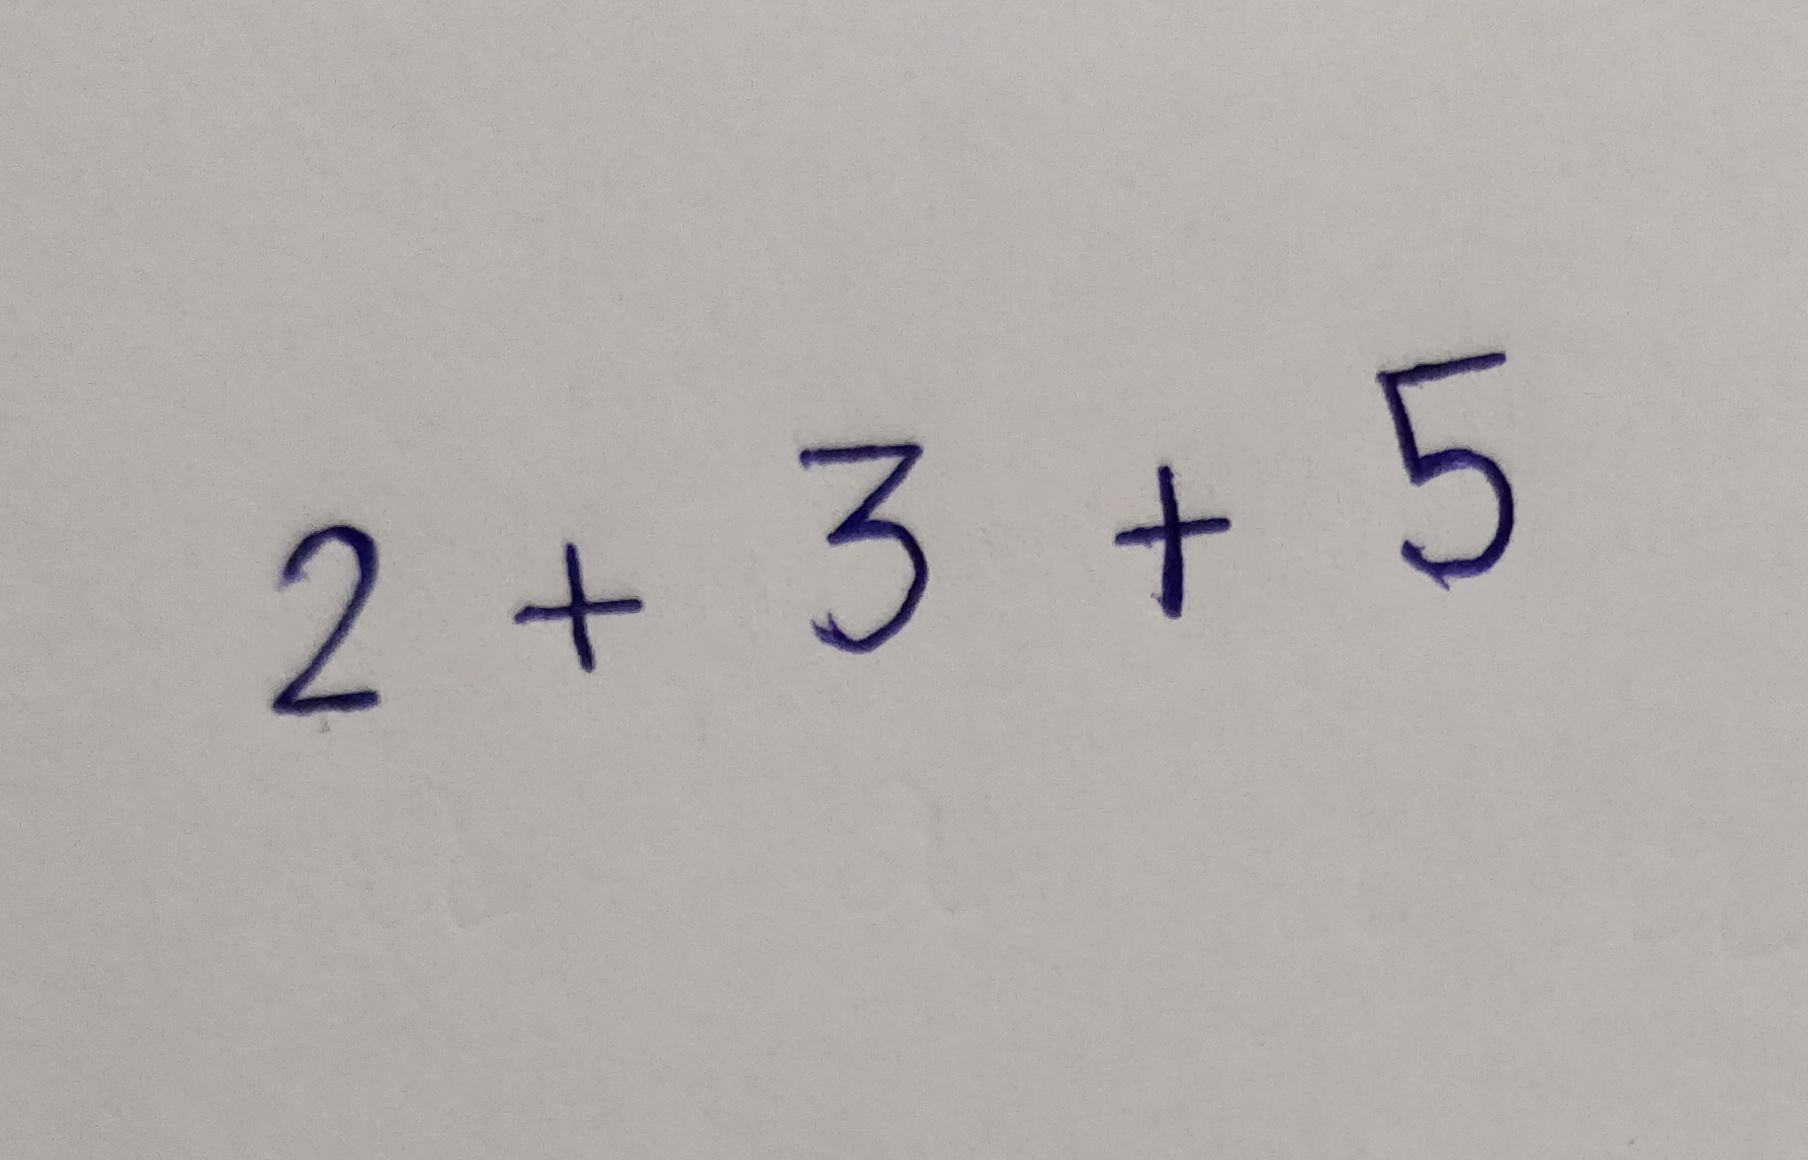 2 + 3 + 5